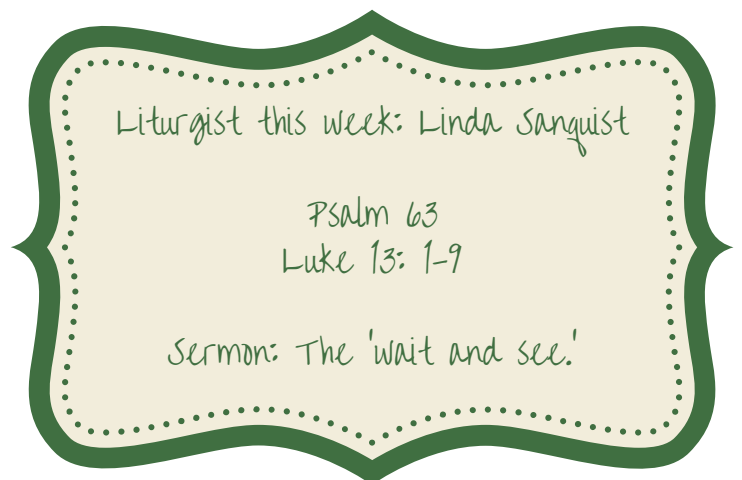 Liturgist this week: Linda Sanquist
Psalm 63
Luke 13: 1-9
Sermon: The 'wait and see.'